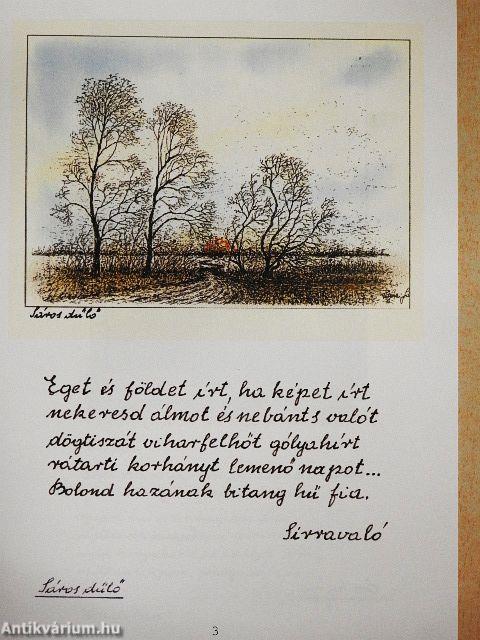 Sáros dűlő
Eget és földet írt, ha képet írt
nekeresd álmot és nebánts valót
dögtiszát viharfelhőt gólyahírt
rátarti korhányt lemenő napot...
Bolond hazának bitang hű fia.
Sirravaló
Sáros dűlő
Antikvárium.hu
3